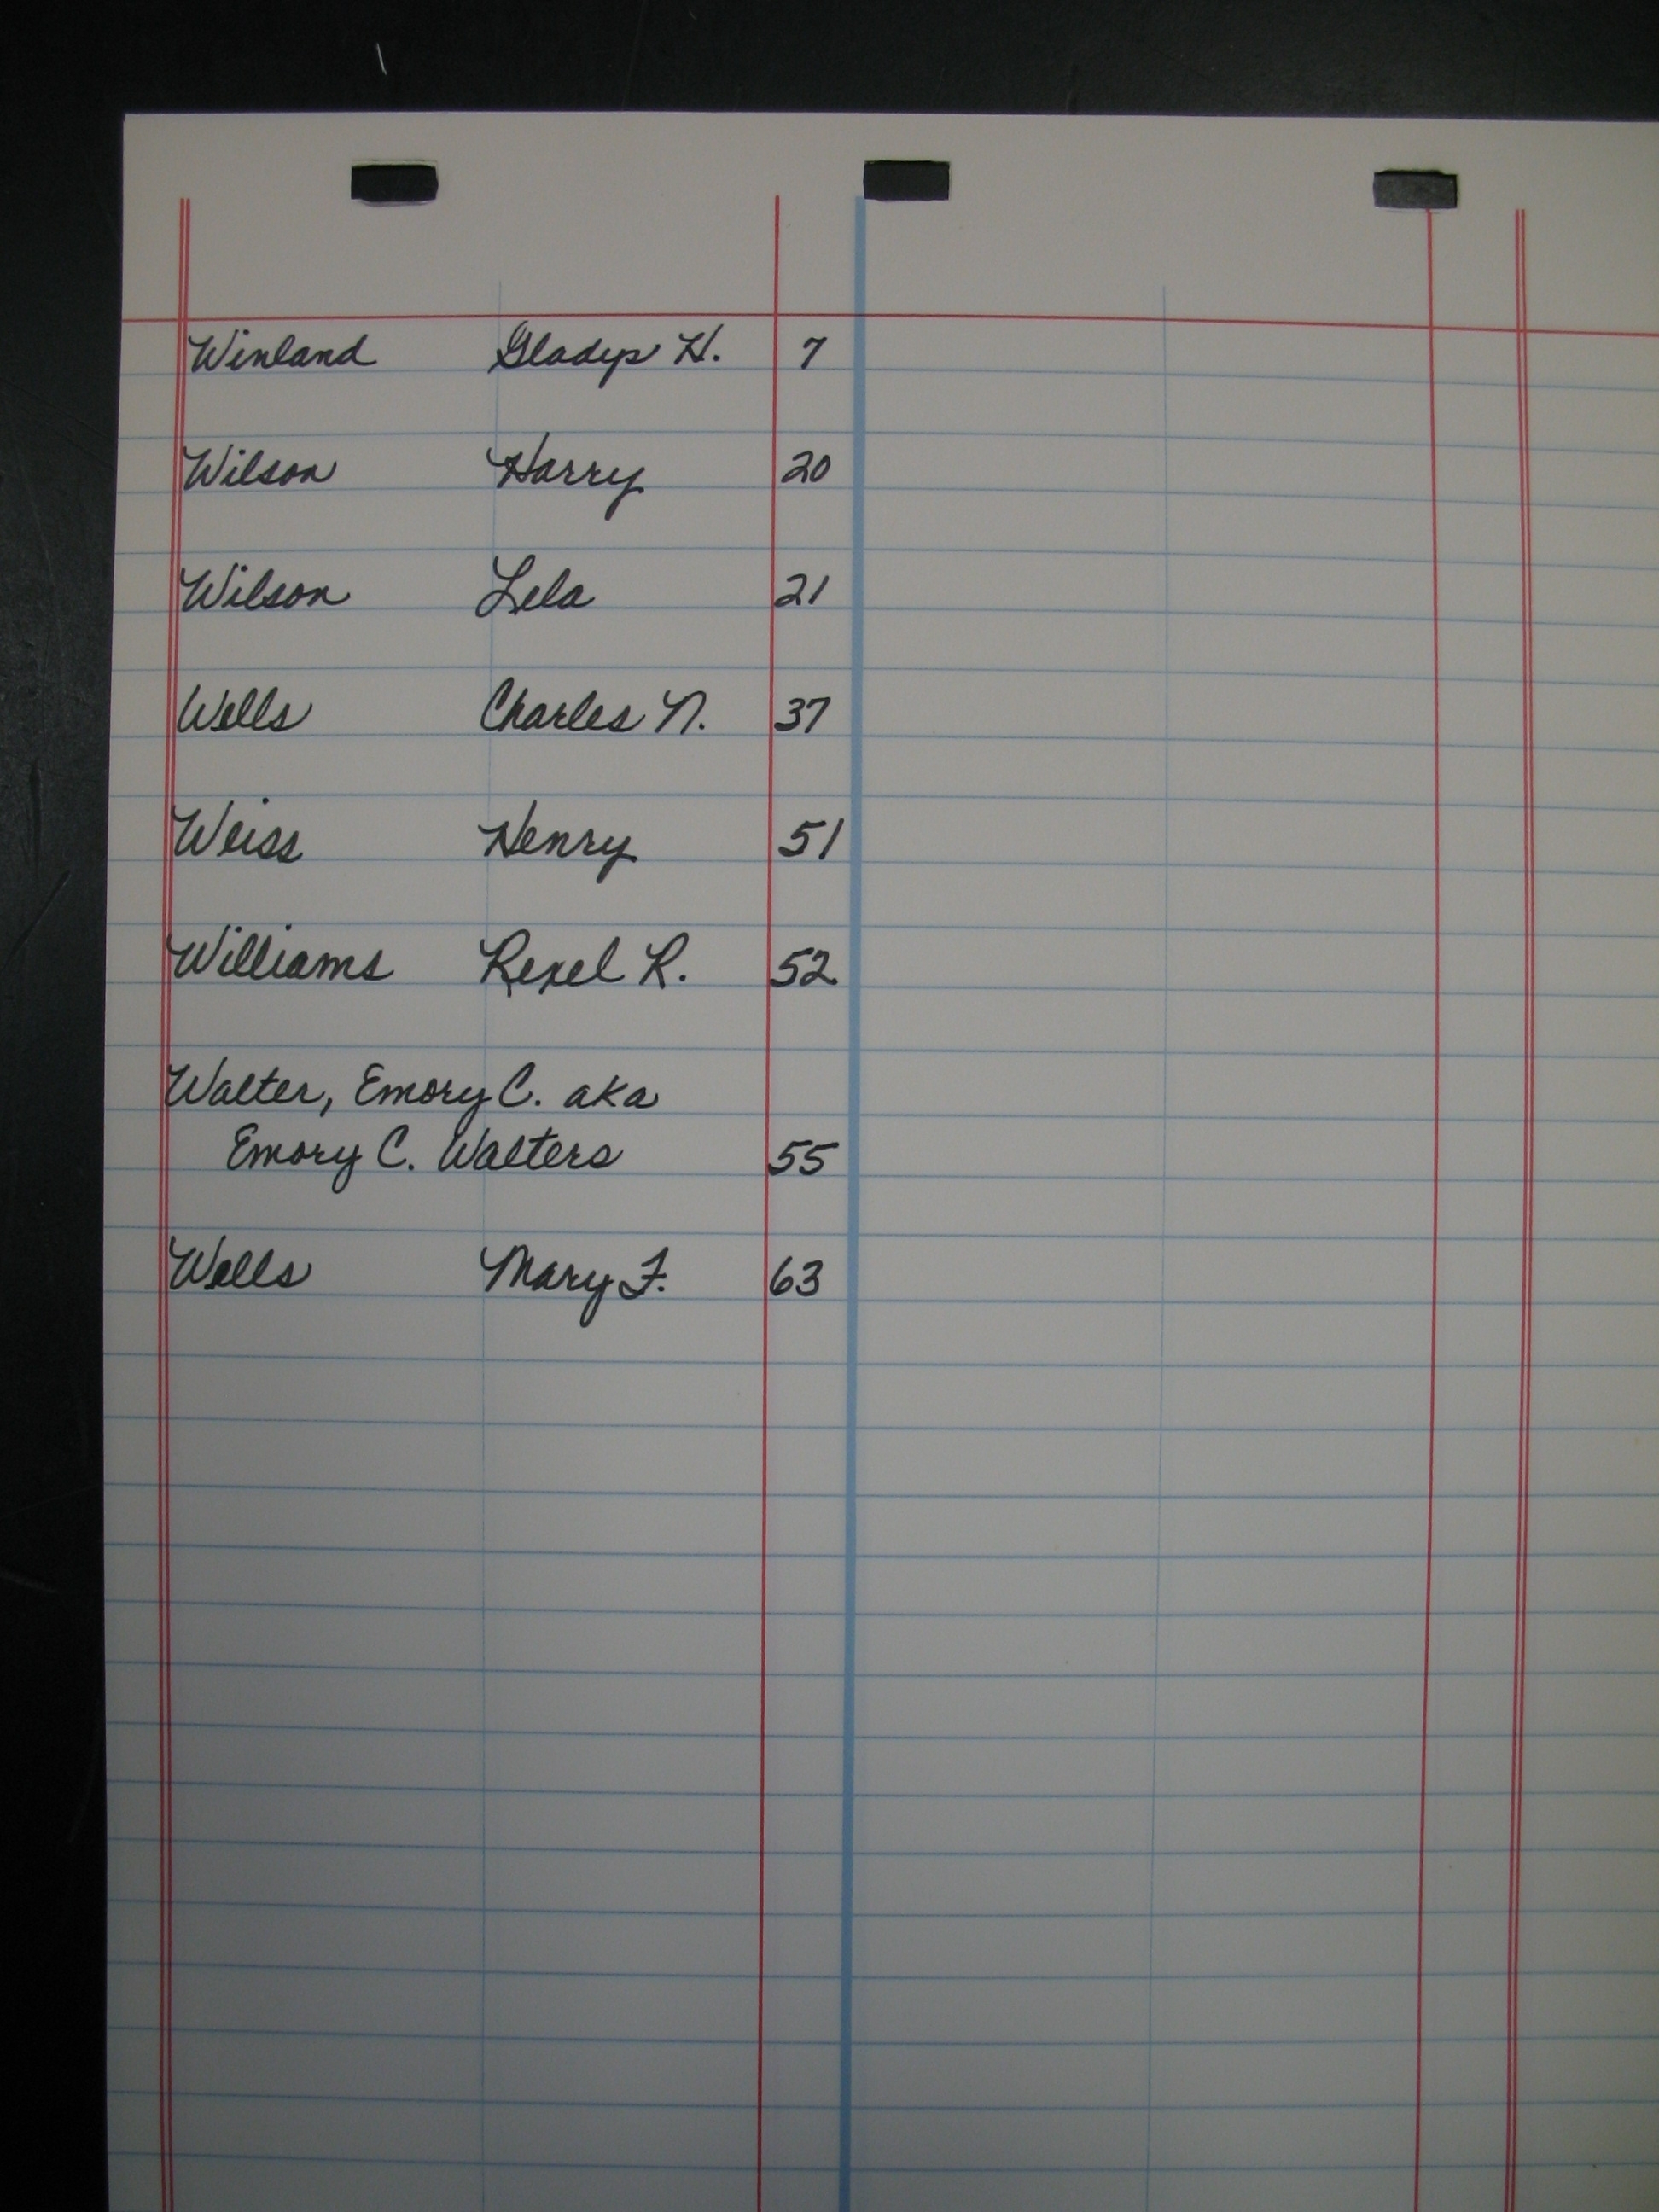 Winland Gladys H. 7
Wilson Harry 20
Wilson Lela 21
Wells Charles N. 37
Weiss Henry 51
Williams Rexel R. 52
Walter, Emory C. aka
Emory C. Walters 55
Wells Mary F. 63